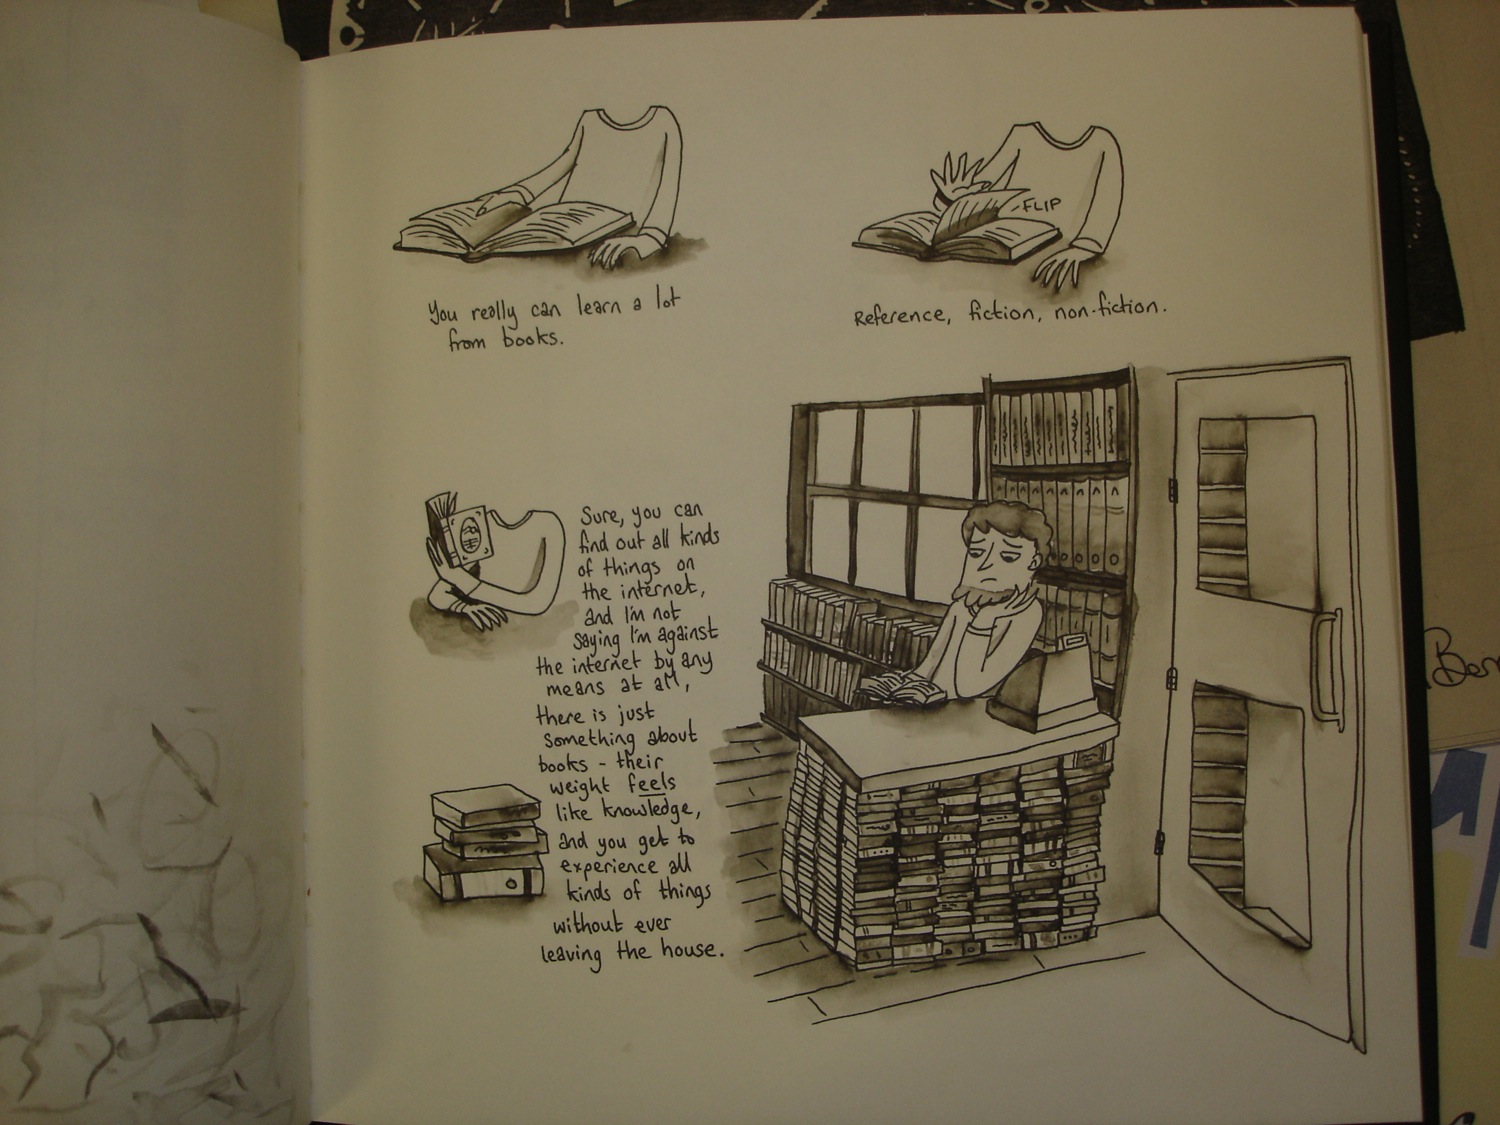 You really can learn a lot
from books.
FLIP
Reference, fiction, non-fiction.
Sure, you can
find out all kinds
of things on
the internet,
and I'm not
saying I'm against
the internet by any
means at all,
there is just
something about
books - their
weight feels
like knowledge,
and you get to
experience all
kinds of things
without ever
leaving the house.